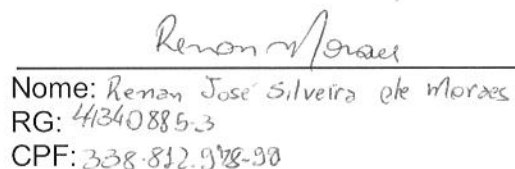 Renan Moraes
Nome: Renan José Silveira de Moraes
RG: 41340885-3
CPF: 338.812.978-90